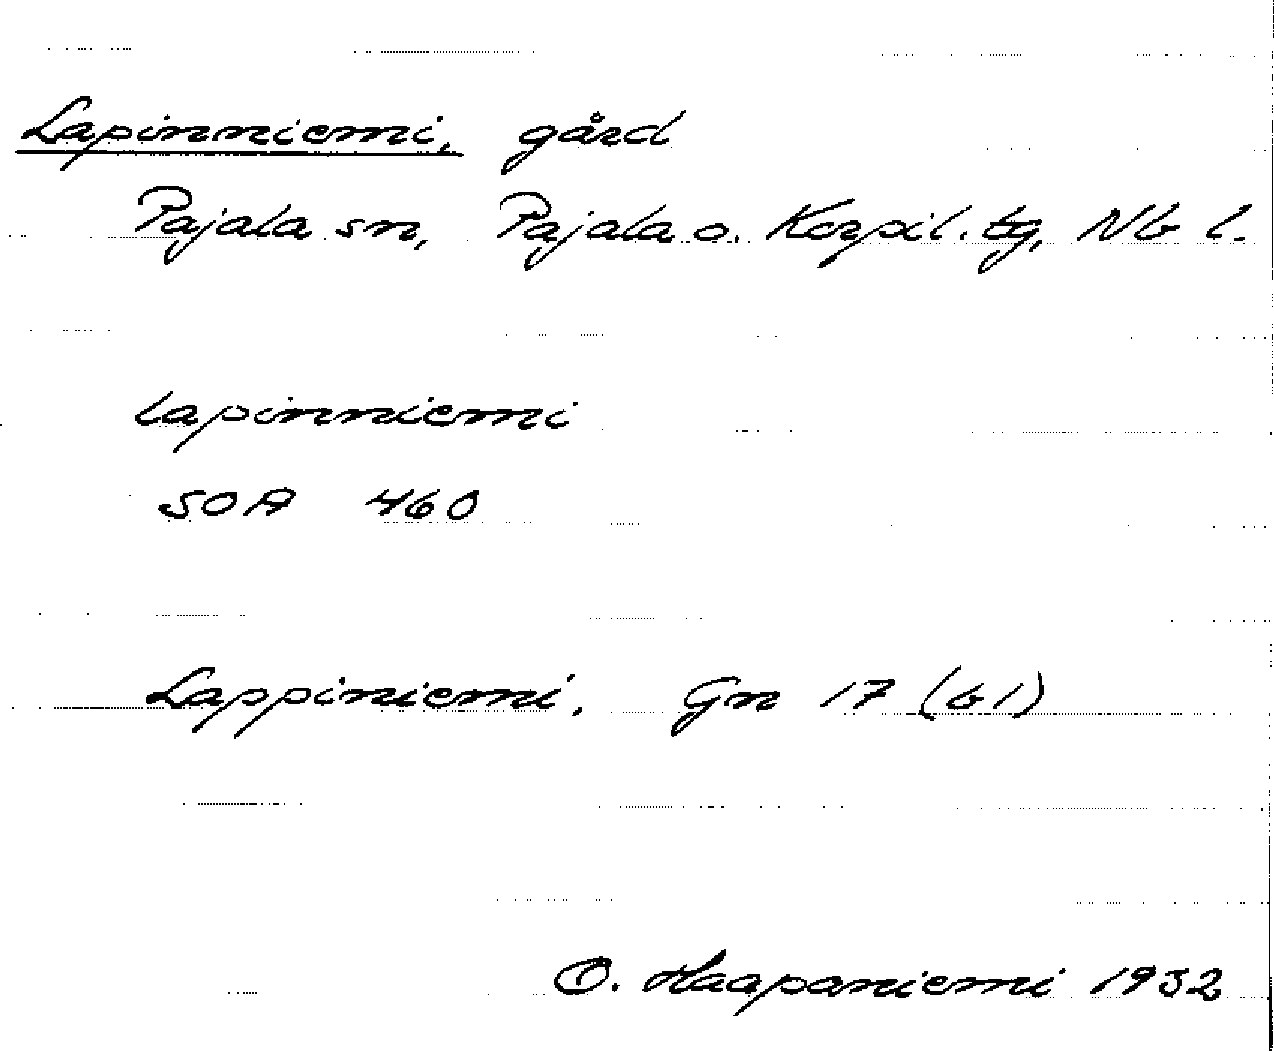 Lapinniemi, gård
Pajala sn, Pajala o. Korpil. tg, Nb l.
lapinniemi
SOA 460
Lappiniemi, Gn 17 (b1)
O. Haapaniemi 1932